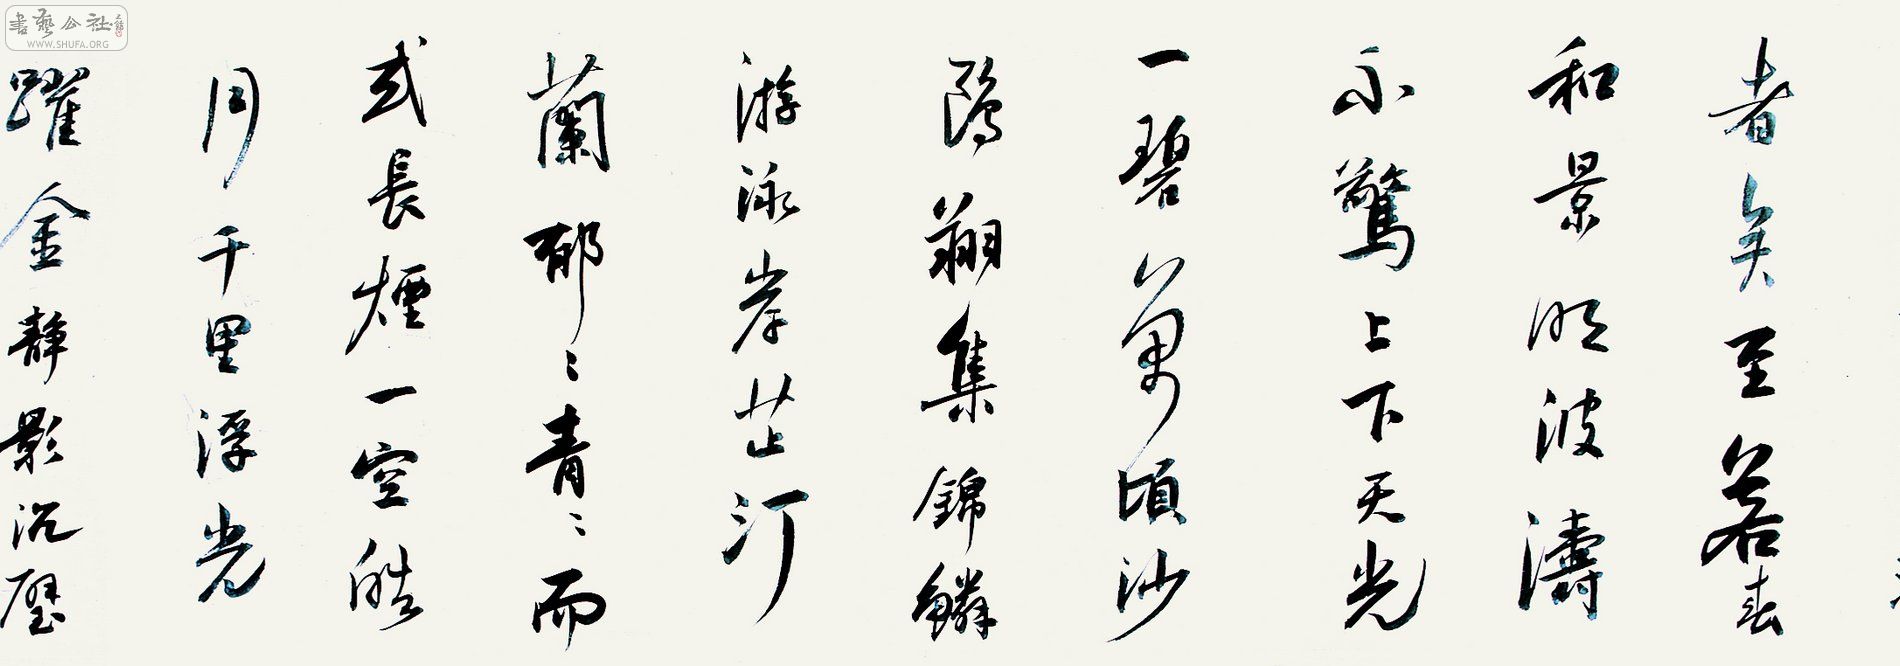 者矣至若春
和景明波濤
不驚上下天光
一碧萬頃沙
鷗翔集錦鱗
游泳岸芷汀
蘭郁〻青〻而
或長煙一空皓
月千里浮光
躍金靜影沉璧
書藝公社
WWW.SHUFA.ORG